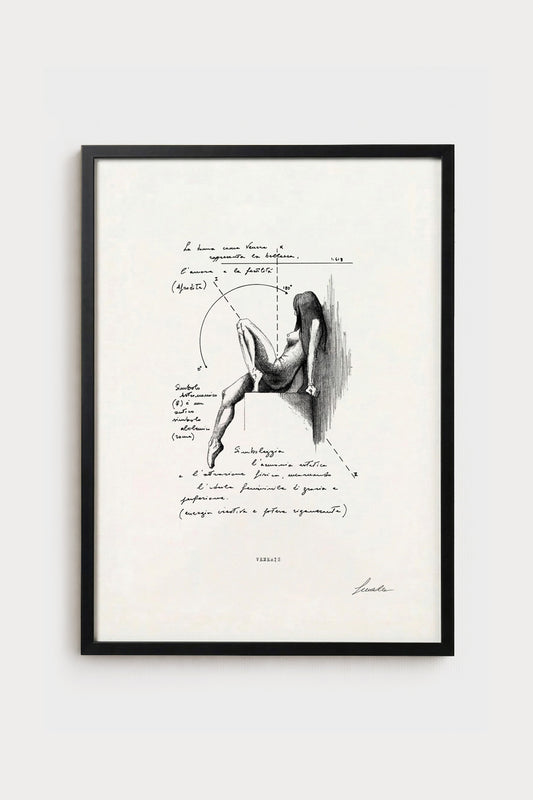 La donna come Venere
rappresenta la bellezza,
l'amore e la fertilità
(Afrodite)
1.618
180°
0°
Simbolo
astronomico
(♀) è un
antico
simbolo
alchemico
(rame)
Simboleggia
l'armonia estetica
e l'attrazione fisica, incarnando
l'ideale femminile di grazia e
perfezione.
(energia creativa e potere rigenerante)